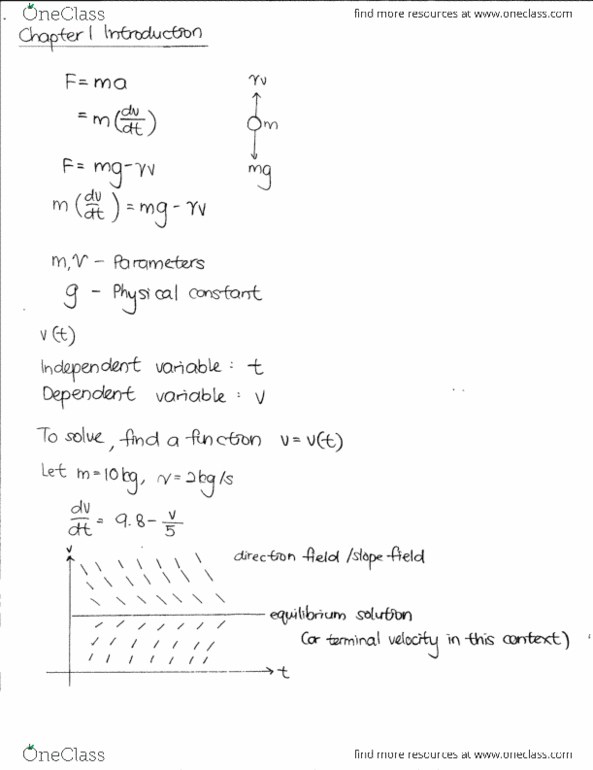 OneClass find more resources at www.oneclass.com
Chapter 1 Introduction
F = ma
= m(dv/dt)
γv
m
mg
F = mg - γv
m(dv/dt) = mg - γv
m, γ - Parameters
g - Physical constant
v(t)
Independent variable : t
Dependent variable : v
To solve, find a function v = v(t)
Let m = 10kg, γ = 2kg/s
dv/dt = 9.8 - v/5
v
direction field /slope field
equilibrium solution
(or terminal velocity in this context)
t
OneClass find more resources at www.oneclass.com